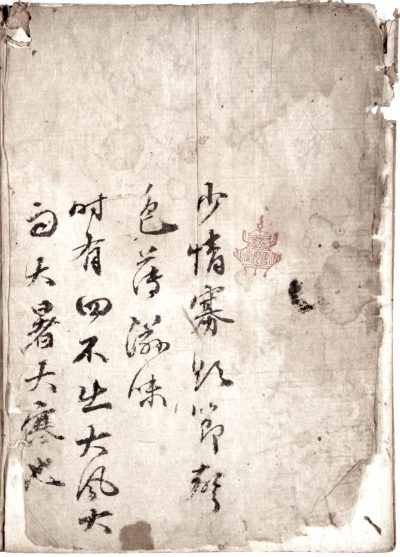 少情寡欲節聲
色薄滋味
时有四不出大風大
雨大暑大寒也